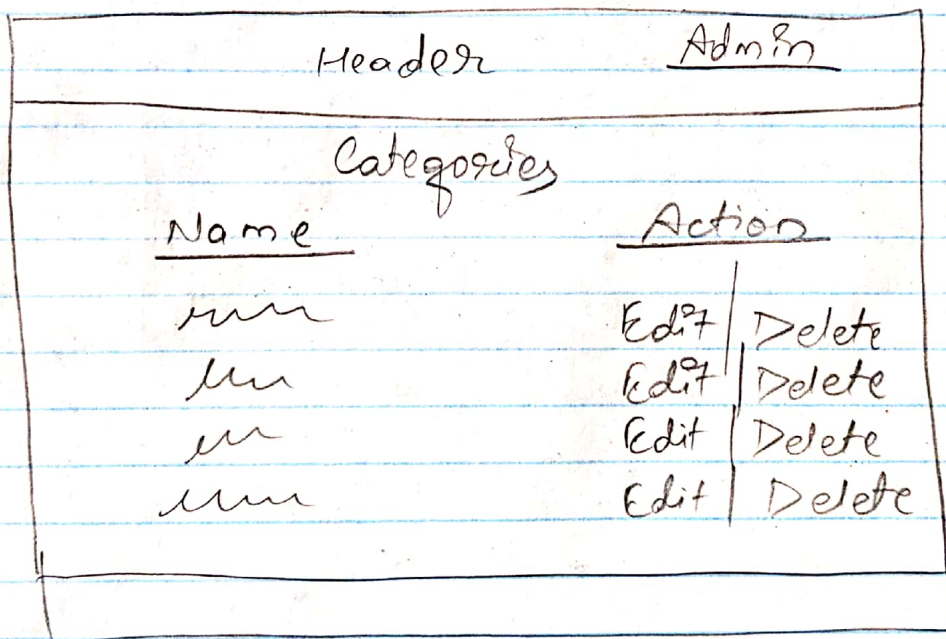 Header Admin
Categories
Name Action
Edit | Delete
Edit | Delete
Edit | Delete
Edit | Delete